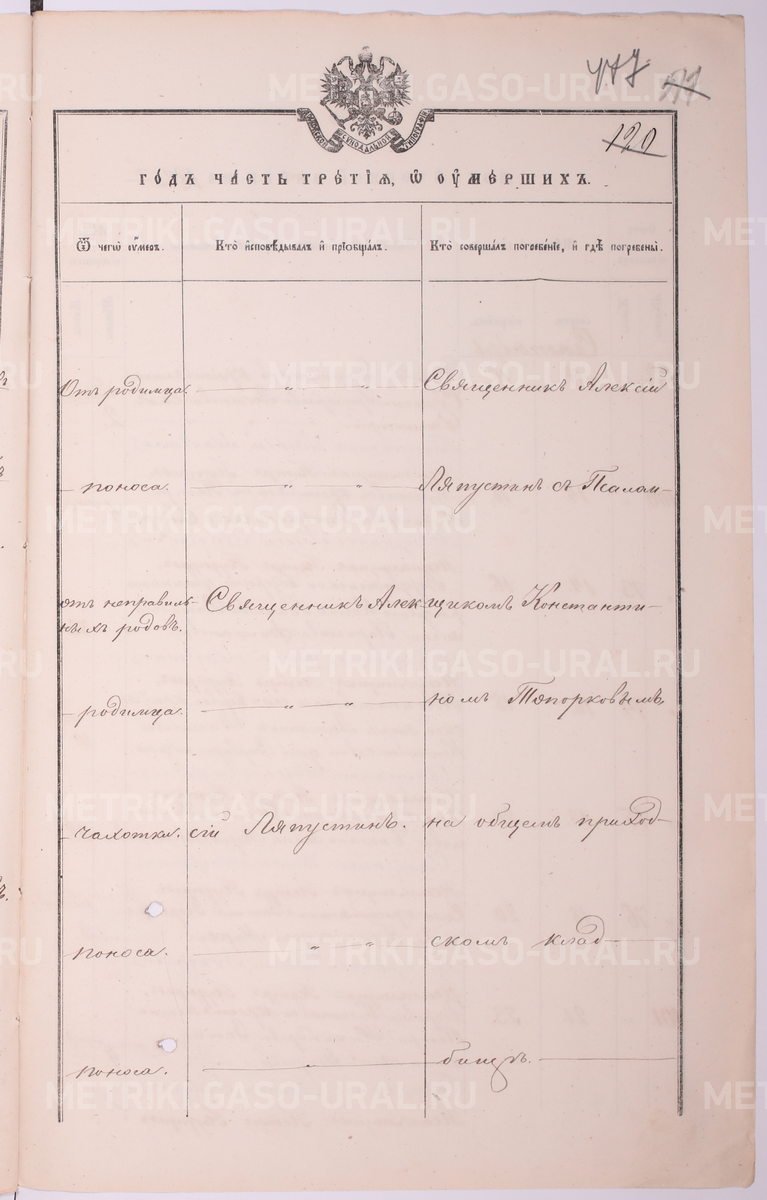 477
120
МОСКОВСКОЙ СѴНОДАЛЬНОЙ ТИПОГРАФІИ
ГОДЪ ЧАСТЬ ТРЕТІЯ, Ѡ ОУМЕРШИХЪ.
Ѿ чегѡ оумеръ.
Кто исповѣдывалъ и пріобщалъ.
Кто совершалъ погребеніе, и гдѣ погребены.
Отъ родимца. — „ — „ — Священникъ Алексій
— поноса. — „ — „ — Ляпустинъ съ Псалом-
отъ неправиль- Священникъ Алек- щикомъ Константи-
ныхъ родовъ.
— родимца. — „ — „ — номъ Топорковымъ
— чахотки. сій Ляпустинъ. на общемъ приход-
поноса. — „ — „ — скомъ клад-
поноса. — „ — бищѣ. —
METRIKI.GASO-URAL.RU